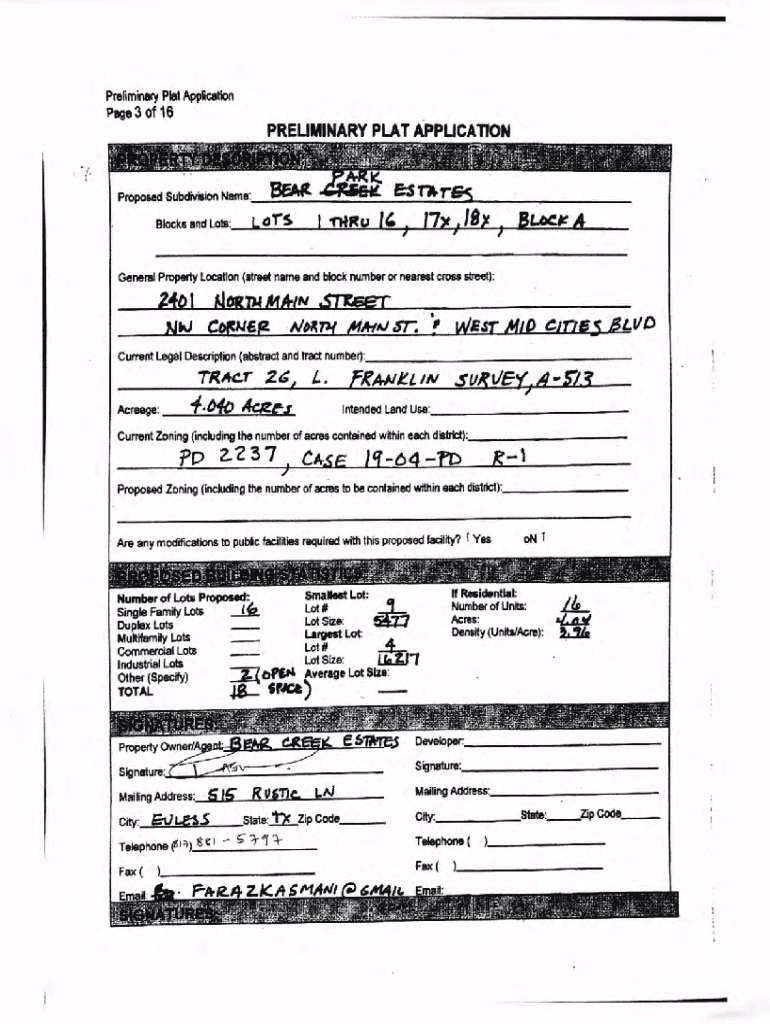 Preliminary Plat Application
Page 3 of 16
PRELIMINARY PLAT APPLICATION
PROPERTY DESCRIPTION
PARK
Proposed Subdivision Name: BEAR CREEK ESTATES
Blocks and Lots: LOTS 1 THRU 16, 17x, 18x, BLOCK A
General Property Location (street name and block number or nearest cross street):
2401 NORTH MAIN STREET
NW CORNER NORTH MAIN ST. & WEST MID CITIES BLVD
Current Legal Description (abstract and tract number):
TRACT 26, L. FRANKLIN SURVEY, A-513
Acreage: 4.040 ACRES Intended Land Use:
Current Zoning (including the number of acres contained within each district):
PD 2237, CASE 19-04-PD R-1
Proposed Zoning (including the number of acres to be contained within each district):
Are any modifications to public facilities required with this proposed facility? Yes oN
PROPOSED BUILDING STATISTICS
Number of Lots Proposed: Smallest Lot: If Residential:
Single Family Lots 16 Lot # 9 Number of Units: 16
Duplex Lots Lot Size: 5477 Acres: 4.04
Multifamily Lots Largest Lot Density (Units/Acre): 3.96
Commercial Lots Lot # 4
Industrial Lots Lot Size: 16217
Other (Specify) 2 (OPEN Average Lot Size:
TOTAL 18 SPACE)
SIGNATURES
Property Owner/Agent: BEAR CREEK ESTATES Developer:
Signature: Signature:
Mailing Address: 515 RUSTIC LN Mailing Address:
City: EULESS State: TX Zip Code City: State: Zip Code
Telephone (817) 881-5797 Telephone ( )
Fax ( ) Fax ( )
Email FARAZKASMANI@GMAIL Email:
SIGNATURES